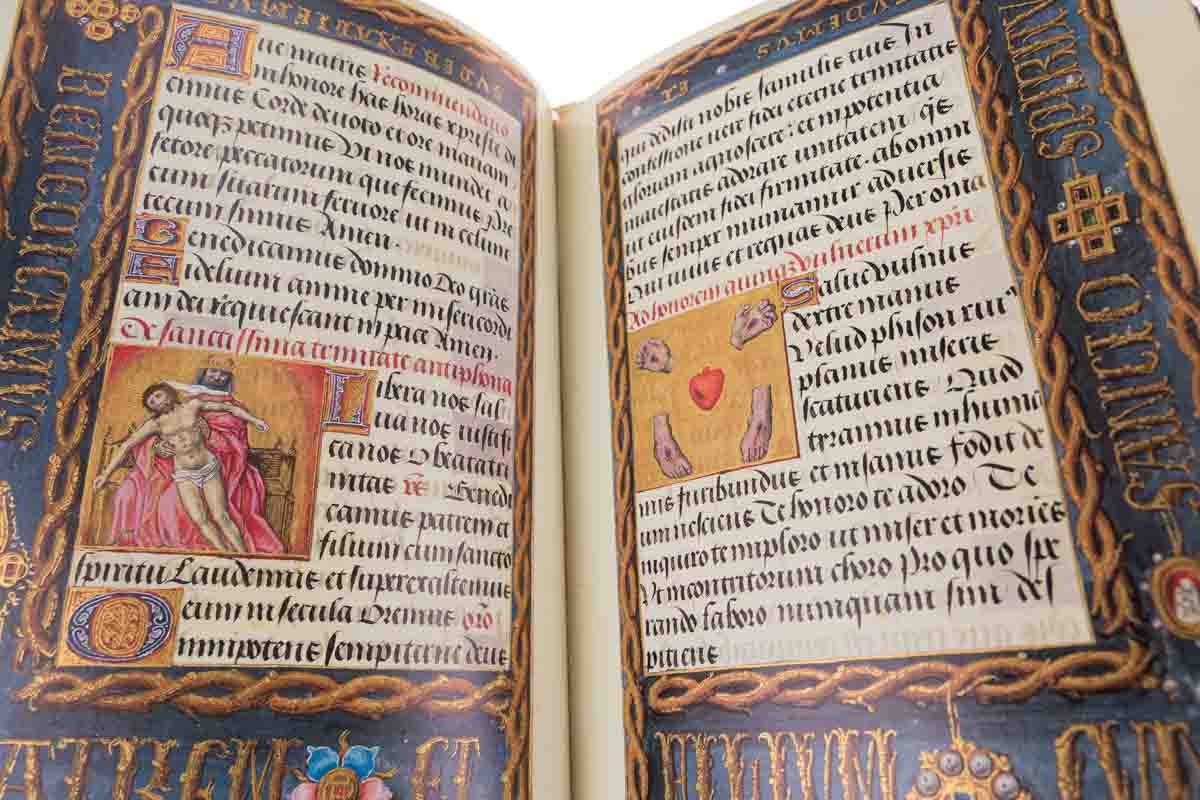 BENEDICAMVS
Aue matris recommendatio
In honore has horas xpriste di
cimus Corde deuoto et ore mariam
quoqz petimus Vt nos mundet a
fetore peccatorum que fecimus Pre
cum suarum feruore ut in celum
tecum simus Amen
Benedicamus domino Deo gras
Fidelium anime per misericordi
am dei requiescant in pace Amen
De sanctissima trinitate antiphona
Libera nos sal
ua nos iustifi
ca nos O beata tri
nitas Benedi
camus patrem et
filium cum sancto
spiritu Laudemus et superexaltemus
eum in secula Oremus
Omnipotens sempiterne deus
PATREM ET
ET
qui dedisti nobis famulis tuis In
confessione vere fidei eterne trinitatis
gloriam agnoscere et in potentia
maiestatis adorare unitatem
ut eiusdem fidei firmitate ab omni
bus semper muniamur aduersis
Qui uiuis et regnas deus Per omnia
Ad honorem quinqz vulnerum xpri
Salue vulnus
dextre manus
Velud phison riuus
planus miserie
scaturiens Quid
tirannus inhuma
nis furibundus et insanus fodit de
um nesciens Te honoro te adoro Te
inquiro te imploro ut miser et moriens
Vt in contritorum choro Pro quo spe
rando laboro nunquam sim des
piciens
SPIRITV
SANCTO
FILIVM CVM